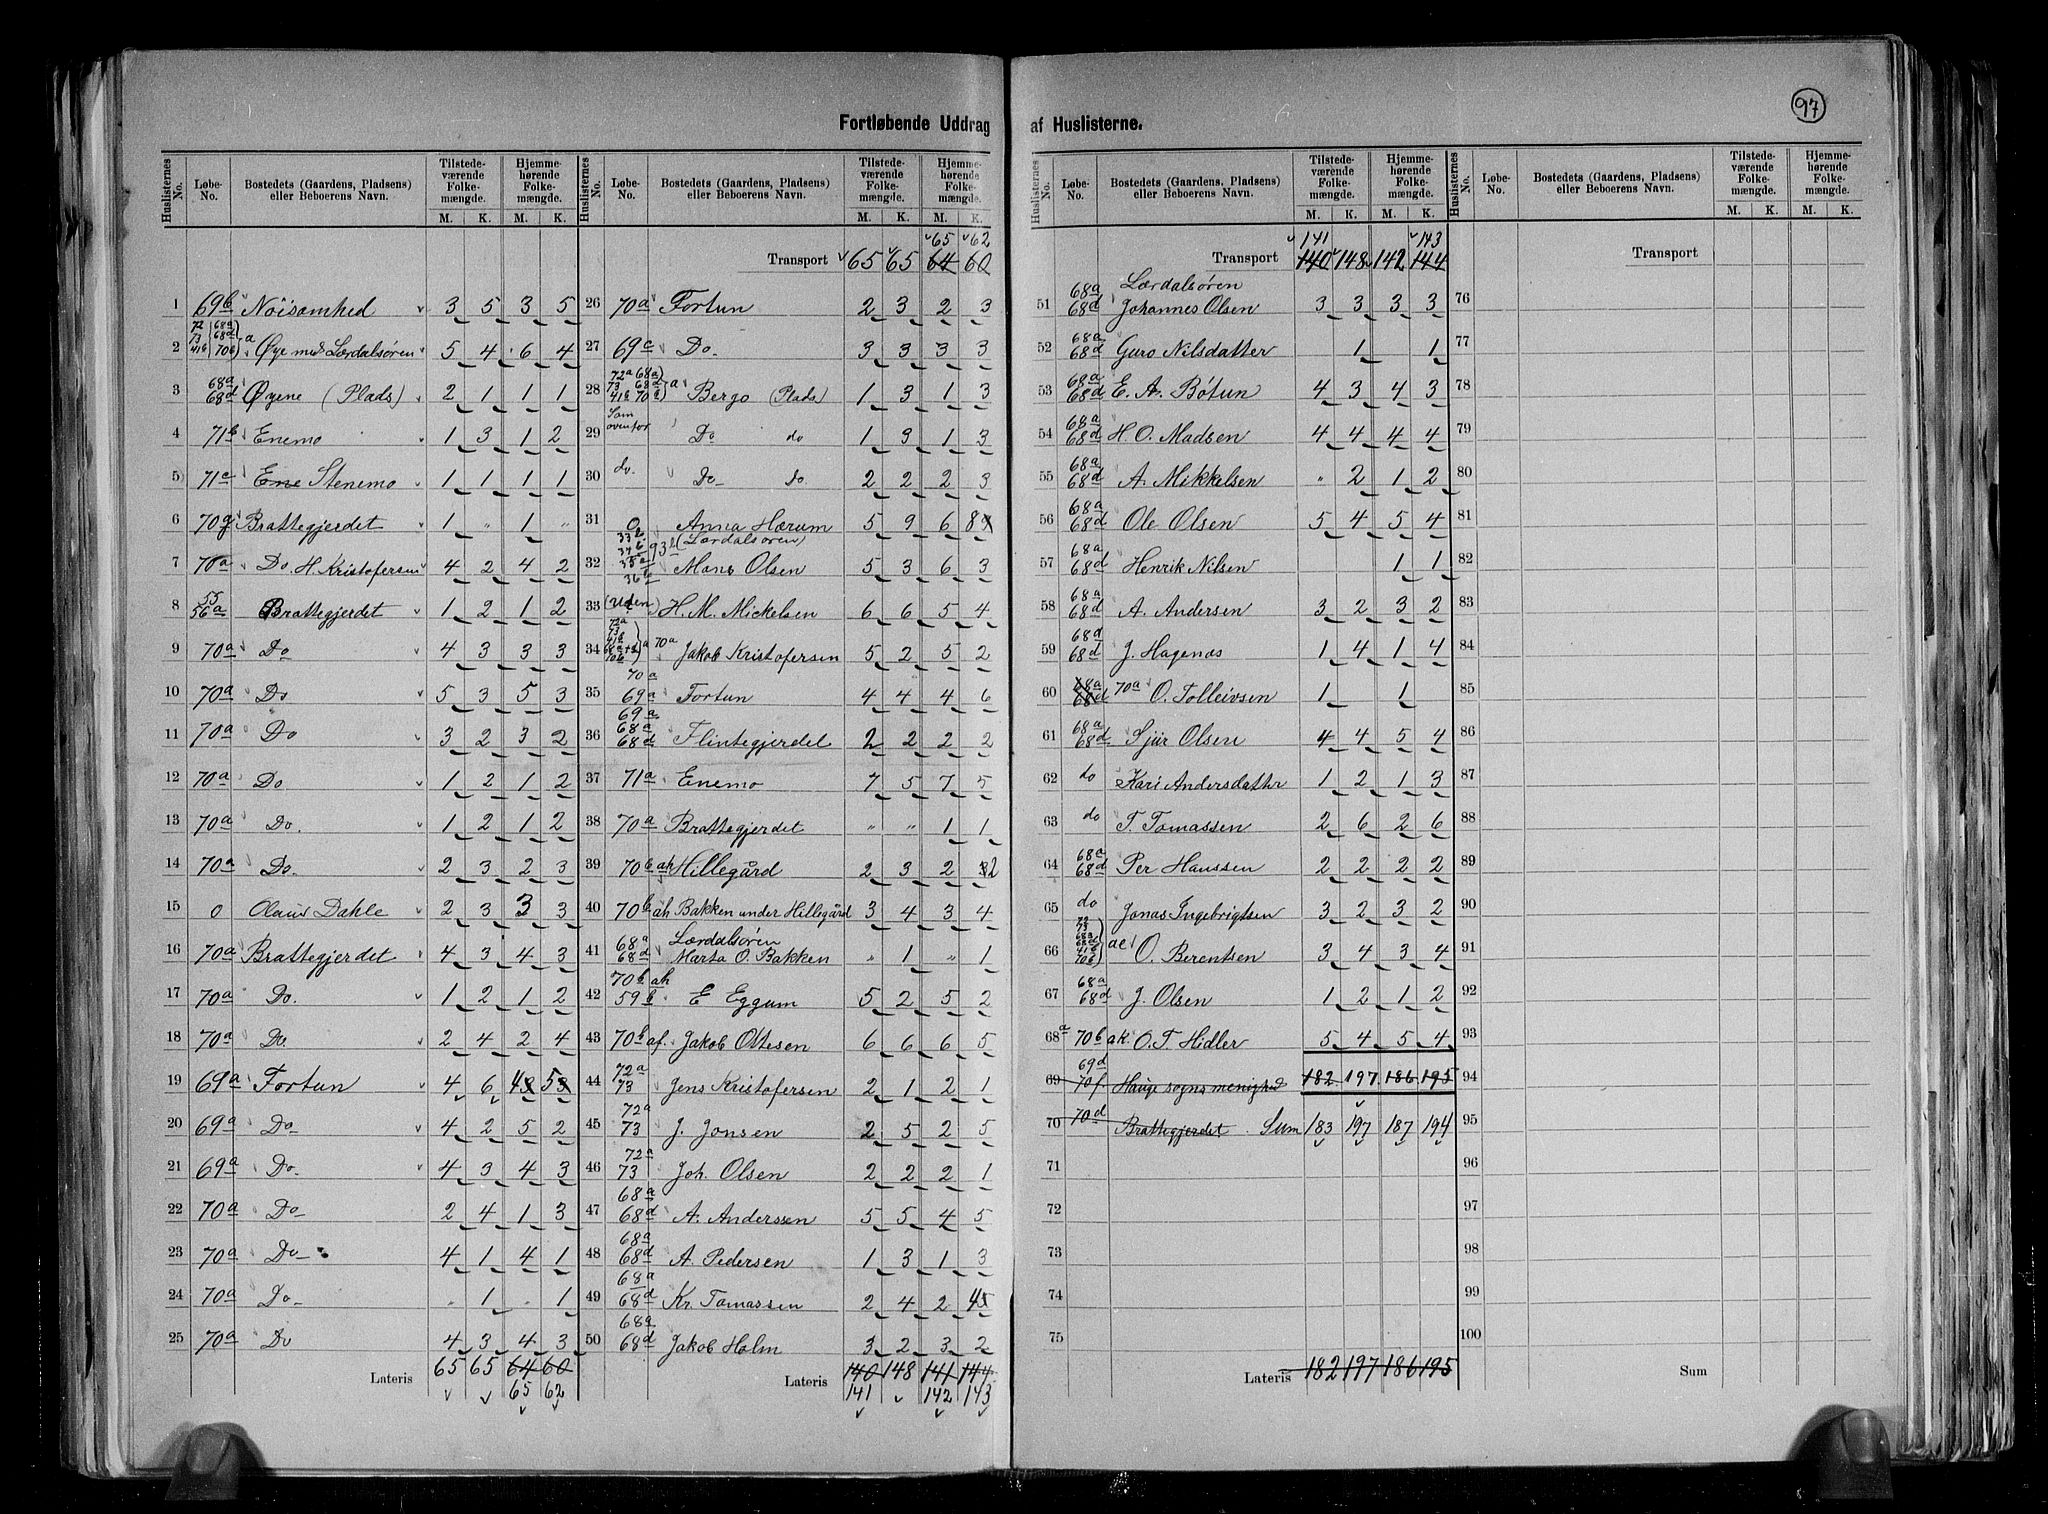 97
Fortløbende Uddrag af Huslisterne.
Huslisternes No. | Løbe-No. | Bostedets (Gaardens, Pladsens) eller Beboerens Navn. | Tilstedeværende Folkemængde. M. K. | Hjemmehørende Folkemængde. M. K.
1 69b Nöisomhed 3 5 3 5
2 72 73 41b 68a 68d 70b a Øye med Lærdalsören 5 4 6 4
3 68a 68d Øyene (Plads) 2 1 1 1
4 71b Enemo 1 3 1 2
5 71c Ene Stenemo 1 1 1 1
6 70g Brattegjerdet 1 " 1 "
7 70a Do. H. Kristofersen 4 2 4 2
8 55 56a Brattegjerdet 1 2 1 2
9 70a Do 4 3 3 3
10 70a Do 5 3 5 3
11 70a Do 3 2 3 2
12 70a Do 1 2 1 2
13 70a Do. 1 2 1 2
14 70a Do. 2 3 2 3
15 0 Olaus Dahle 2 3 3 3
16 70a Brattegjerdet 4 3 4 3
17 70a Do. 1 2 1 2
18 70a Do. 2 4 2 4
19 69a Fortun 4 6 4 5
20 69a Do- 4 2 5 2
21 69a Do- 4 3 4 3
22 70a Do- 2 4 1 3
23 70a Do- 4 1 4 1
24 70a Do- " 1 " 1
25 70a Do 4 3 4 3
Lateris 65 65 64 60
65 62
65 62
Transport 65 65 64 60
26 70a Fortun 2 3 2 3
27 69c Do- 3 3 3 3
28 72a 68a 73 68d 41b 70b a Bergo (Plads) 1 3 1 3
29 Som ovenfor Do do 1 3 1 3
30 do. Do- do 2 2 2 3
31 0 Anna Hærum 5 9 6 8
(Lærdalsören)
32 33b 34b 35a 36b 93b Mons Olsen 5 3 6 3
33 (Uden) H. M. Mickelsen 6 6 5 4
34 72a 73 41b 68a+d 70b a 70a Jakob Kristofersen 5 2 5 2
35 70a 69a Fortun 4 4 4 6
36 69a 68a 68d Flintegjerdet 2 2 2 2
37 71a Enemo 7 5 7 5
38 70a Brattegjerdet " " 1 1
39 70b ah Hillegård 2 3 2 2
40 70b ah Bakken under Hillegård 3 4 3 4
41 68a 68d Lærdalsören
Marta O. Bakken " 1 " 1
42 70b ah 59b E Eggum 5 2 5 2
43 70b af. Jakob Ottesen 6 6 6 5
44 72a 73 Jens Kristofersen 2 1 2 1
45 72a 73 J. Jonsen 2 5 2 5
46 72a 73 Joh. Olsen 2 2 2 1
47 68a 68d A. Anderssen 5 5 4 5
48 68a 68d A. Pedersen 1 3 1 3
49 68a 68d Kr. Tomassen 2 4 2 4
50 68a 68d Jakob Holm 3 2 3 2
Lateris 140 148 141 144
141 142 143
141 143
Transport 140 148 142 144
51 68a 68d Lærdalsören
Johannes Olsen 3 3 3 3
52 68a 68d Guro Nilsdatter 1 1
53 68a 68d E. A. Bötun 4 3 4 3
54 68a 68d H. O. Madsen 4 4 4 4
55 68a 68d A. Mikkelsen " 2 1 2
56 68a 68d Ole Olsen 5 4 5 4
57 68a 68d Henrik Nilsen 1 1
58 68a 68d A. Andersen 3 2 3 2
59 68d 68d J. Hagenas 1 4 1 4
60 68a 68d 70a O. Tolleivsen 1 1
61 68a 68d Sjur Olsen 4 4 5 4
62 do Kari Andersdatter 1 2 1 3
63 do T. Tomassen 2 6 2 6
64 68a 68d Per Hanssen 2 2 2 2
65 do Jonas Ingebrigtsen 3 2 3 2
66 72 73 68a 68d 41b 70b ae O. Berentsen 3 4 3 4
67 68a 68d J. Olsen 1 2 1 2
68a 70b ak. O. T. Hidler 5 4 5 4
69 69d 70f Hauge sogns menighed 182 197 186 195
70 70d Brattegjerdet. Sum 183 197 187 194
71
72
73
74
75
Lateris 182 197 186 195
Transport
76
77
78
79
80
81
82
83
84
85
86
87
88
89
90
91
92
93
94
95
96
97
98
99
100
Sum